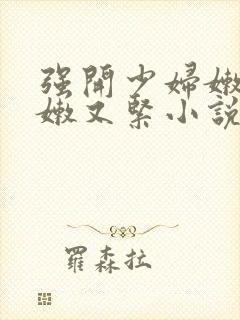 强開少婦嫩
嫩又緊小説
羅森拉